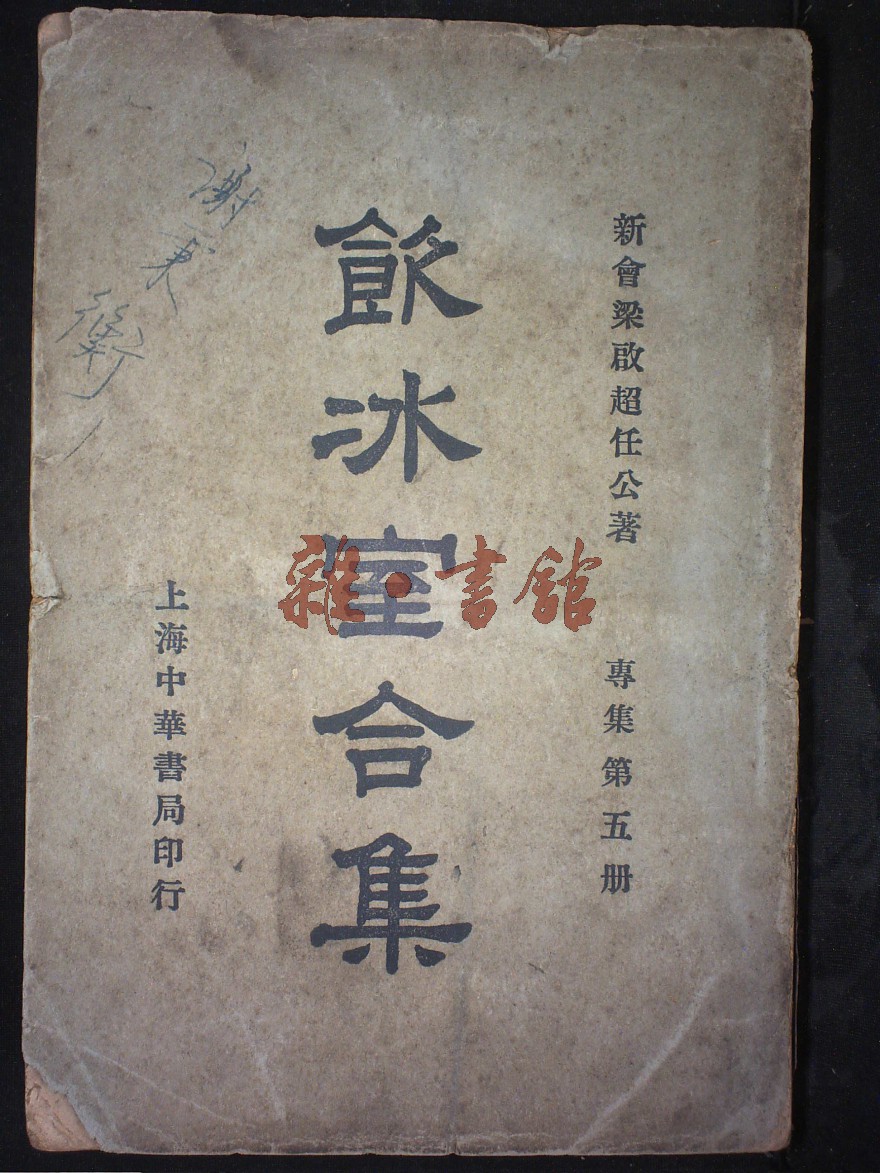 新會梁啟超任公著
專集第五册
飲冰室合集
上海中華書局印行
雜·書館